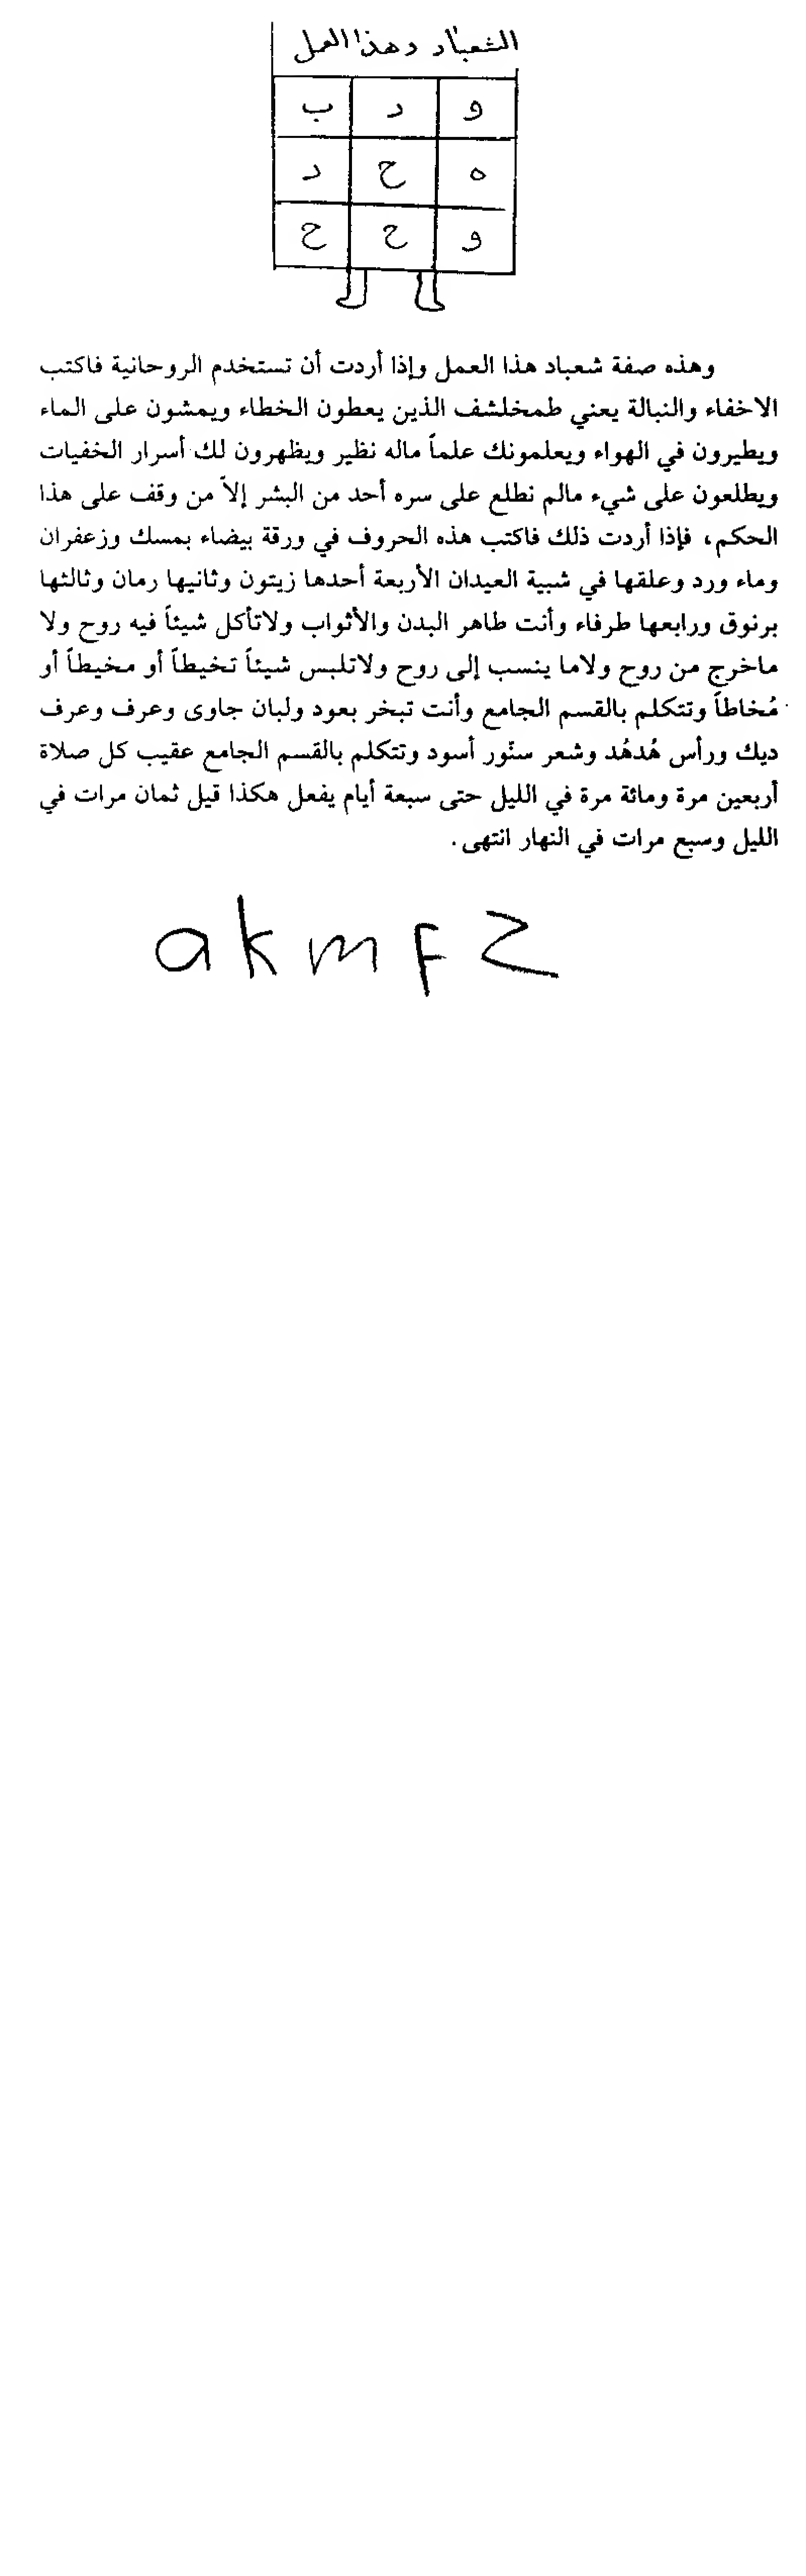 الشعباد وهذا العمل
و د ب
ه ح د
و ح ح
وهذه صفة شعباد هذا العمل وإذا أردت أن تستخدم الروحانية فاكتب
الاخفاء والنبالة يعني طمخلشف الذين يعطون الخطاء ويمشون على الماء
ويطيرون في الهواء ويعلمونك علماً ماله نظير ويظهرون لك أسرار الخفيات
ويطلعون على شيء مالم نطلع على سره أحد من البشر إلاّ من وقف على هذا
الحكم، فإذا أردت ذلك فاكتب هذه الحروف في ورقة بيضاء بمسك وزعفران
وماء ورد وعلقها في شبية العيدان الأربعة أحدها زيتون وثانيها رمان وثالثها
برنوق ورابعها طرفاء وأنت طاهر البدن والأثواب ولاتأكل شيئاً فيه روح ولا
ماخرج من روح ولاما ينسب إلى روح ولاتلبس شيئاً تخيطاً أو مخيطاً أو
مُخاطاً وتتكلم بالقسم الجامع وأنت تبخر بعود ولبان جاوى وعرف وعرف
ديك ورأس هُدهُد وشعر سنّور أسود وتتكلم بالقسم الجامع عقيب كل صلاة
أربعين مرة ومائة مرة في الليل حتى سبعة أيام يفعل هكذا قيل ثمان مرات في
الليل وسبع مرات في النهار انتهى.
a k m F Z